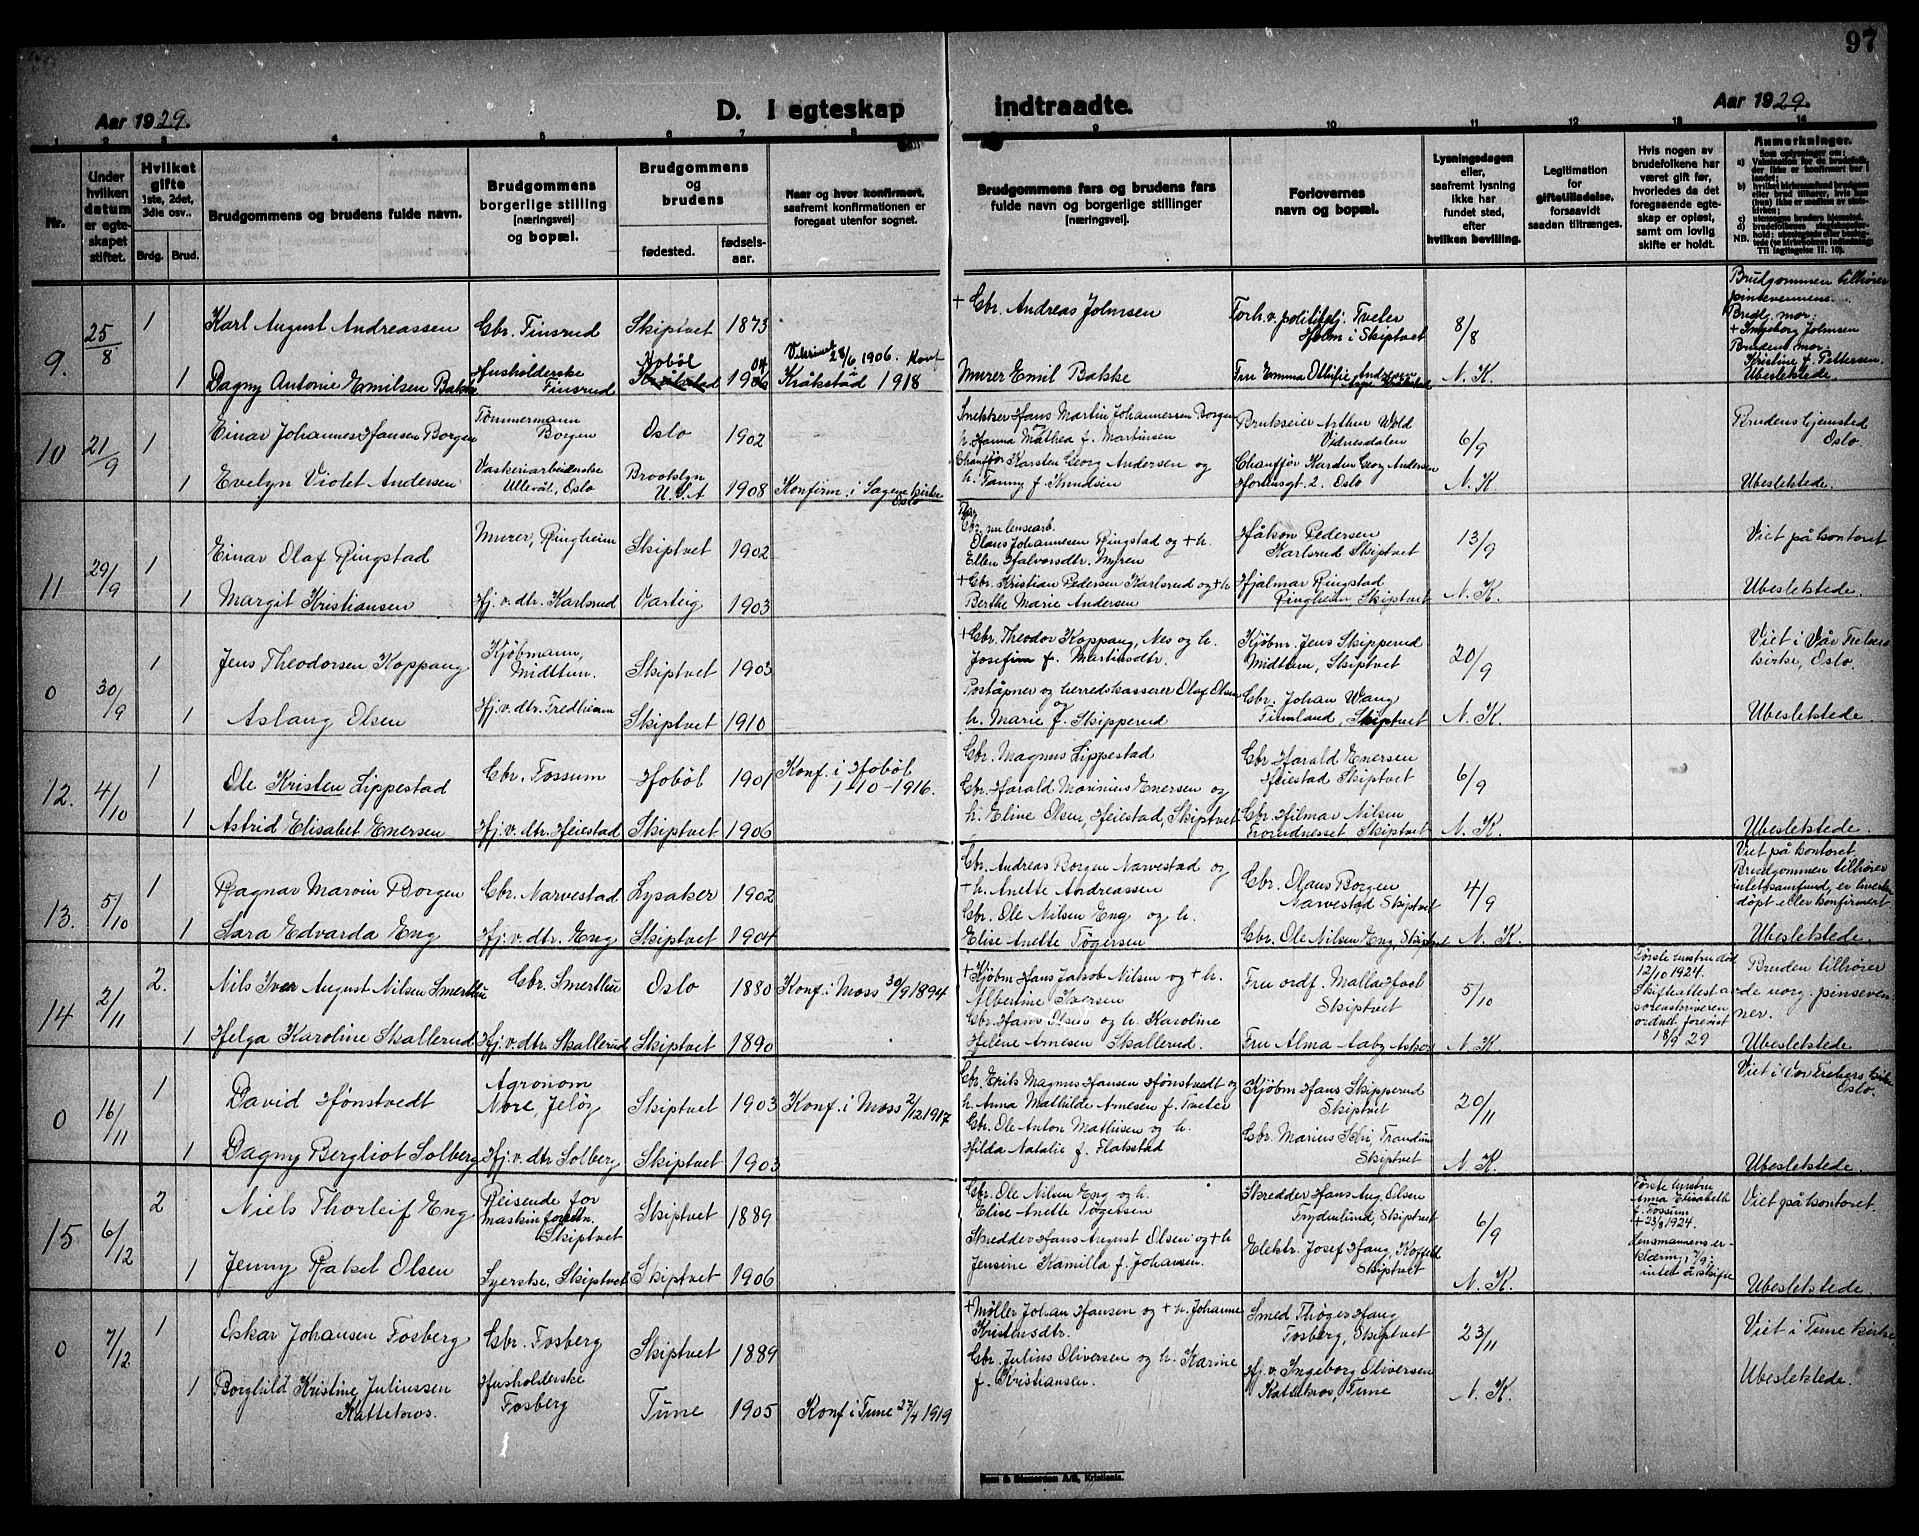 97
Aar 1929.
D. I egteskap indtraadte.
Aar 1929.
1 2 3 4 5 6 7 8 9 10 11 12 13 14
Nr.
Under hvilken datum er egteskapet stiftet.
Hvilket gifte 1ste, 2det, 3die osv..
Brdg. Brud.
Brudgommens og brudens fulde navn.
Brudgommens borgerlige stilling [næringsvei] og bopæl.
Brudgommens og brudens
fødested.
fødselsaar.
Naar og hvor konfirmert, saafremt konfirmationen er foregaat utenfor sognet.
Brudgommens fars og brudens fars fulde navn og borgerlige stillinger [næringsvei].
Forlovernes navn og bopæl.
Lysningsdagen eller, saafremt lysning ikke har fundet sted, efter hvilken bevilling.
Legitimation for giftetilladelse, forsaavidt saadan tiltrænges.
Hvis nogen av brudefolkene har været gift før, hvorledes da det foregaaende egteskap er opløst, samt om lovlig skifte er holdt.
Anmerkninger.
9. 25/8 1 Karl August Andreassen Gbr. Finsrud Skiptvet 1873
+ Gbr. Andreas Johnsen Forh.v. politifulj. Tveter Holm i Skiptvet 8/8
Brudgommen tilhører pinsevennene. Brudg. mor: + Ingeborg Johnsen Brudens mor. Kristine f. Pettersen. Ubeslektede.
1 Dagny Antonie Emilsen Bakke Husholderske Finsrud Hobøl 1904 28/6 1906. Konf. Kråkstad 1918
Murer Emil Bakke Fru Emma Ottilie N. K.
10 21/9 1 Einar Johannes Hansen Borgen Tømmermann Borgen Oslo 1902
Snekker Hans Martin Johannessen Borgen og h. Hanna Mathea f. Martinsen Brukseier Arthur Wold Vidnesdalen 6/9 Brudens hjemsted Oslo
1 Evelyn Violet Andersen Vaskeriarbeiderske Ullevål, Oslo Brooklyn U.S.A 1908 Konfirm. i Sagene kirke Oslo
Chauffør Karsten Georg Andersen og h. Fanny f. Knudsen Chauffør Karsten Georg Andersen 2. Oslo N. K. Ubeslektede.
11 29/9 1 Einar Olaf Ringstad Murer, Ringheim Skiptvet 1902
Gbr. nu lensearb. Olaus Johannesen Ringstad og + h. Ellen Halvorsdtr. Myren Håkon Pedersen Karlsrud Skiptvet 13/9 Viet på kontoret
1 Margit Kristiansen Hj. v. dtr. Karlsrud Varteig 1903
+ Gbr. Kristian Pedersen Karlsrud og + h. Berthe Marie Andersen Hjalmar Ringstad Ringheim, Skiptvet N. K. Ubeslektede.
0 30/9 1 Jens Theodorsen Koppang Kjøbmann, Midttun. Skiptvet 1903
+ Gbr. Theodor Koppang, Nes og h. Josefine f. Martinsdtr. Kjøbm. Jens Skipperud Midttun, Skiptvet 20/9 Viet i Vår Frelsers kirke, Oslo.
1 Aslaug Olsen Hj. v. dtr. Fredheim Skiptvet 1910
Poståpner og herredskasserer Olaf Olsen og h. Marie f. Skipperud Gbr. Johan Wang Finnland, Skiptvet N. K. Ubeslektede
12. 4/10 1 Ole Kristen Lippestad Gbr. Fossum Hobøl 1901 Konf. i Hobøl 1-10-1916.
Gbr. Magnus Lippestad Gbr Harald Enersen Heiestad Skiptvet 6/9
1 Astrid Elisabet Enersen Hj. v. dtr. Heiestad Skiptvet 1906
Gbr. Harald Marinius Enersen og h. Eline Olsen, Heiestad, Skiptvet Gbr. Hilmar Nilsen Skiptvet N. K. Ubeslektede.
13. 5/10 1 Ragnar Marvin Borgen Gbr. Narvestad Lysaker 1902
Gbr. Andreas Borgen Narvestad og + h. Anette Andreassen Gbr. Olaus Borgen Narvestad Skiptvet 4/9
Viet på kontoret. Brudgommen tilhører intet samfund, er hverken døpt eller konfirmert
1 Sara Edvarda Eng Hj. v. dtr. Eng Skiptvet 1904
Gbr. Ole Nilsen Eng og h. Elise Anette Tøgersen Gbr. Ole Nilsen Eng, Skiptvet N. K. Ubeslektede.
14 2/11 2. Nils Iver August Nilsen Smerthu Gbr. Smerthu Oslo 1880 Konf. i Moss 30/9 1894
+ Kjøbm Hans Jakob Nilsen og + h. Albertine Iversen Fru ordf. Malla Hoel Skiptvet 5/10
Første hustru død 12/10 1924. Skifteattest av sorenskriveren ordnet forevist 18/9 29
Bruden tilhører de norg. pinsevenner.
1 Helga Karoline Skallerud Hj. v. dtr Skallerud Skiptvet 1890
Gbr. Hans Olsen og h. Karoline Helene Arnesen Skallerud. Fru Alma Aaby Asker N. K. Ubeslektede
0 16/11 1 David Hønstvedt Agronom Nore, Jeløy Skiptvet 1903 Konf. i Moss 2/12 1917
Gbr. Erik Magnus Hansen Hønstvedt og h. Anna Mathilde Arnesen f. Tveter Kjøbm Hans Skipperud Skiptvet 20/11 Viet i Vor Frelsers kirke Oslo.
1 Dagny Bergliot Solberg Hj. v. dtr Solberg Skiptvet 1903
Gbr. Ole Anton Mathisen og h. Hilda Natalie f. Flakstad Gbr. Marius Skiptvet N. K. Ubeslektede.
15 6/12 2 Niels Thorleif Eng Reisende for maskinforretn. Skiptvet Skiptvet 1889
Gbr. Ole Nilsen Eng og h. Elise Anette Tøgersen Skredder Hans Aug. Olsen Frydenlund, Skiptvet 6/9
Første hustru Anna Elisabeth f. Fossum + 23/3 1924. Lensmannens erklæring, 7/9: intet å skifte
Viet på kontoret.
1 Jenny Rakel Olsen Syerske, Skiptvet Skiptvet 1906
Skredder Hans August Olsen og + h Jensine Kamilla f. Johansen. Elektr. Josef Haug, Skiptvet N. K. Ubeslektede.
0 7/12 1 Oskar Johansen Fosberg Gbr. Fosberg Skiptvet 1889
+ Møller Johan Hansen og + h. Johanne Kristensdtr. Smed Thøger Haug Fosberg, Skiptvet 23/11 Viet i Tune kirke
1 Borghild Kristine Juliussen Kattekros. Husholderske Fosberg Tune 1905 Konf i Tune 27/4 1919
Gbr. Julius Oliversen og h. Karine f. Kristiansen. Hj. v. Ingeborg Oliversen Kattekros, Tune N. K. Ubeslektede.